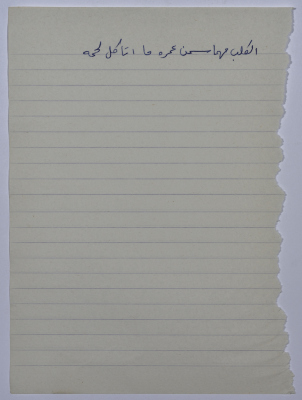 الكلب مهما سمن عمره ما اتاكل لحمه